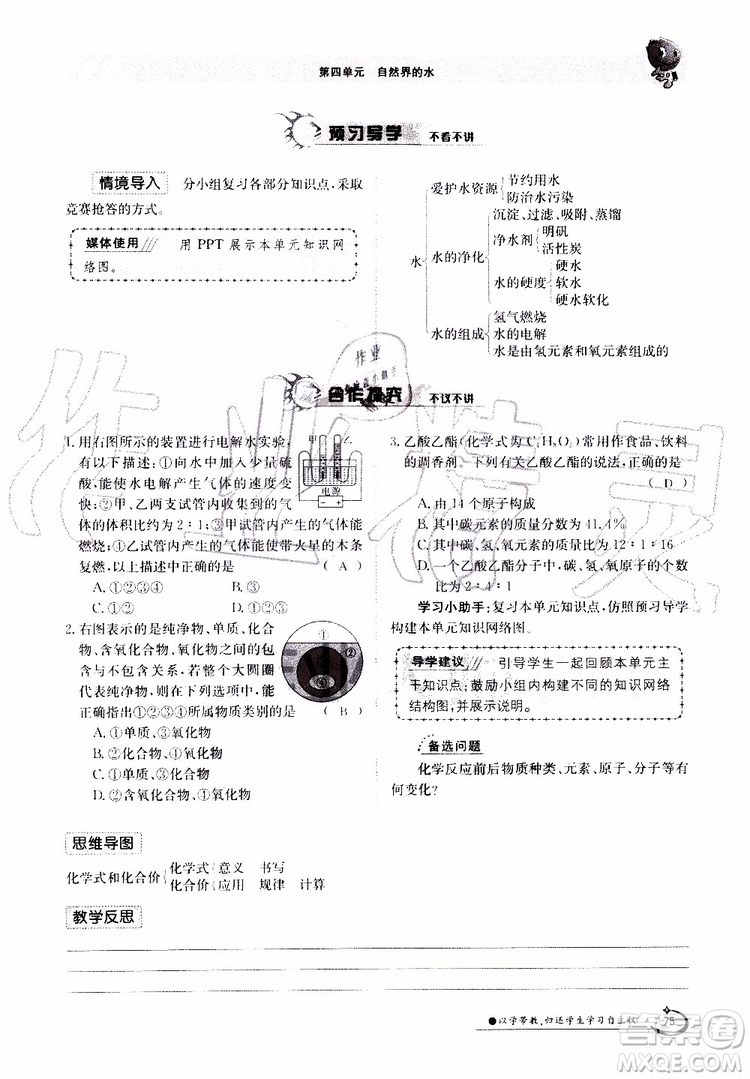 第四单元　自然界的水
预习导学　不看不讲
情境导入　分小组复习各部分知识点,采取
竞赛抢答的方式。
媒体使用　用 PPT 展示本单元知识网
络图。
水
爱护水资源
节约用水
防治水污染
水的净化
沉淀、过滤、吸附、蒸馏
净水剂
明矾
活性炭
水的硬度
硬水
软水
硬水软化
水的组成
氢气燃烧
水的电解
水是由氢元素和氧元素组成的
合作探究　不议不讲
1. 用右图所示的装置进行电解水实验,
有以下描述:①向水中加入少量硫
酸,能使水电解产生气体的速度变
快;②甲、乙两支试管内收集到的气
体的体积比约为 2∶1;③甲试管内产生的气体能
燃烧;④乙试管内产生的气体能使带火星的木条
复燃,以上描述正确的是　( A )
A. ①②③④　B. ①②③
C. ①②④　D. ①③④
甲　乙
电源
2. 右图表示的是纯净物、单质、化合
物、含氧化合物、氧化物之间的包
含与不包含关系。若整个大圆圈
代表纯净物,则在下列选项中,能
正确指出①②③④所属物质类别的是　( B )
A. ①单质、③氧化物
B. ②化合物、④氧化物
C. ①单质、④化合物
D. ②含氧化合物、④氧化物
①
②
3. 乙酸乙酯(化学式为 C₄H₈O₂)常用作食品、饮料
的调香剂。下列有关乙酸乙酯的说法,正确的是
( D )
A. 由 14 个原子构成
B. 其中碳元素的质量分数为 41.4%
C. 其中碳、氢、氧元素的质量比为 12∶1∶16
D. 一个乙酸乙酯分子中,碳、氢、氧原子的个数
比为 2∶4∶1
学习小助手:复习本单元知识点,仿照预习导学
构建本单元知识网络图。
导学建议　引导学生一起回顾本单元主
干知识点;鼓励小组内构建不同的知识网络
结构图,并展示说明。
备选问题
化学反应前后物质种类、元素、原子、分子等有
何变化?
思维导图
化学式和化合价
化学式　意义　书写
化合价　应用　规律　计算
教学反思
●以学带教,归还学生学习自主权
75
作业精灵
答案圈
MXQE.COM